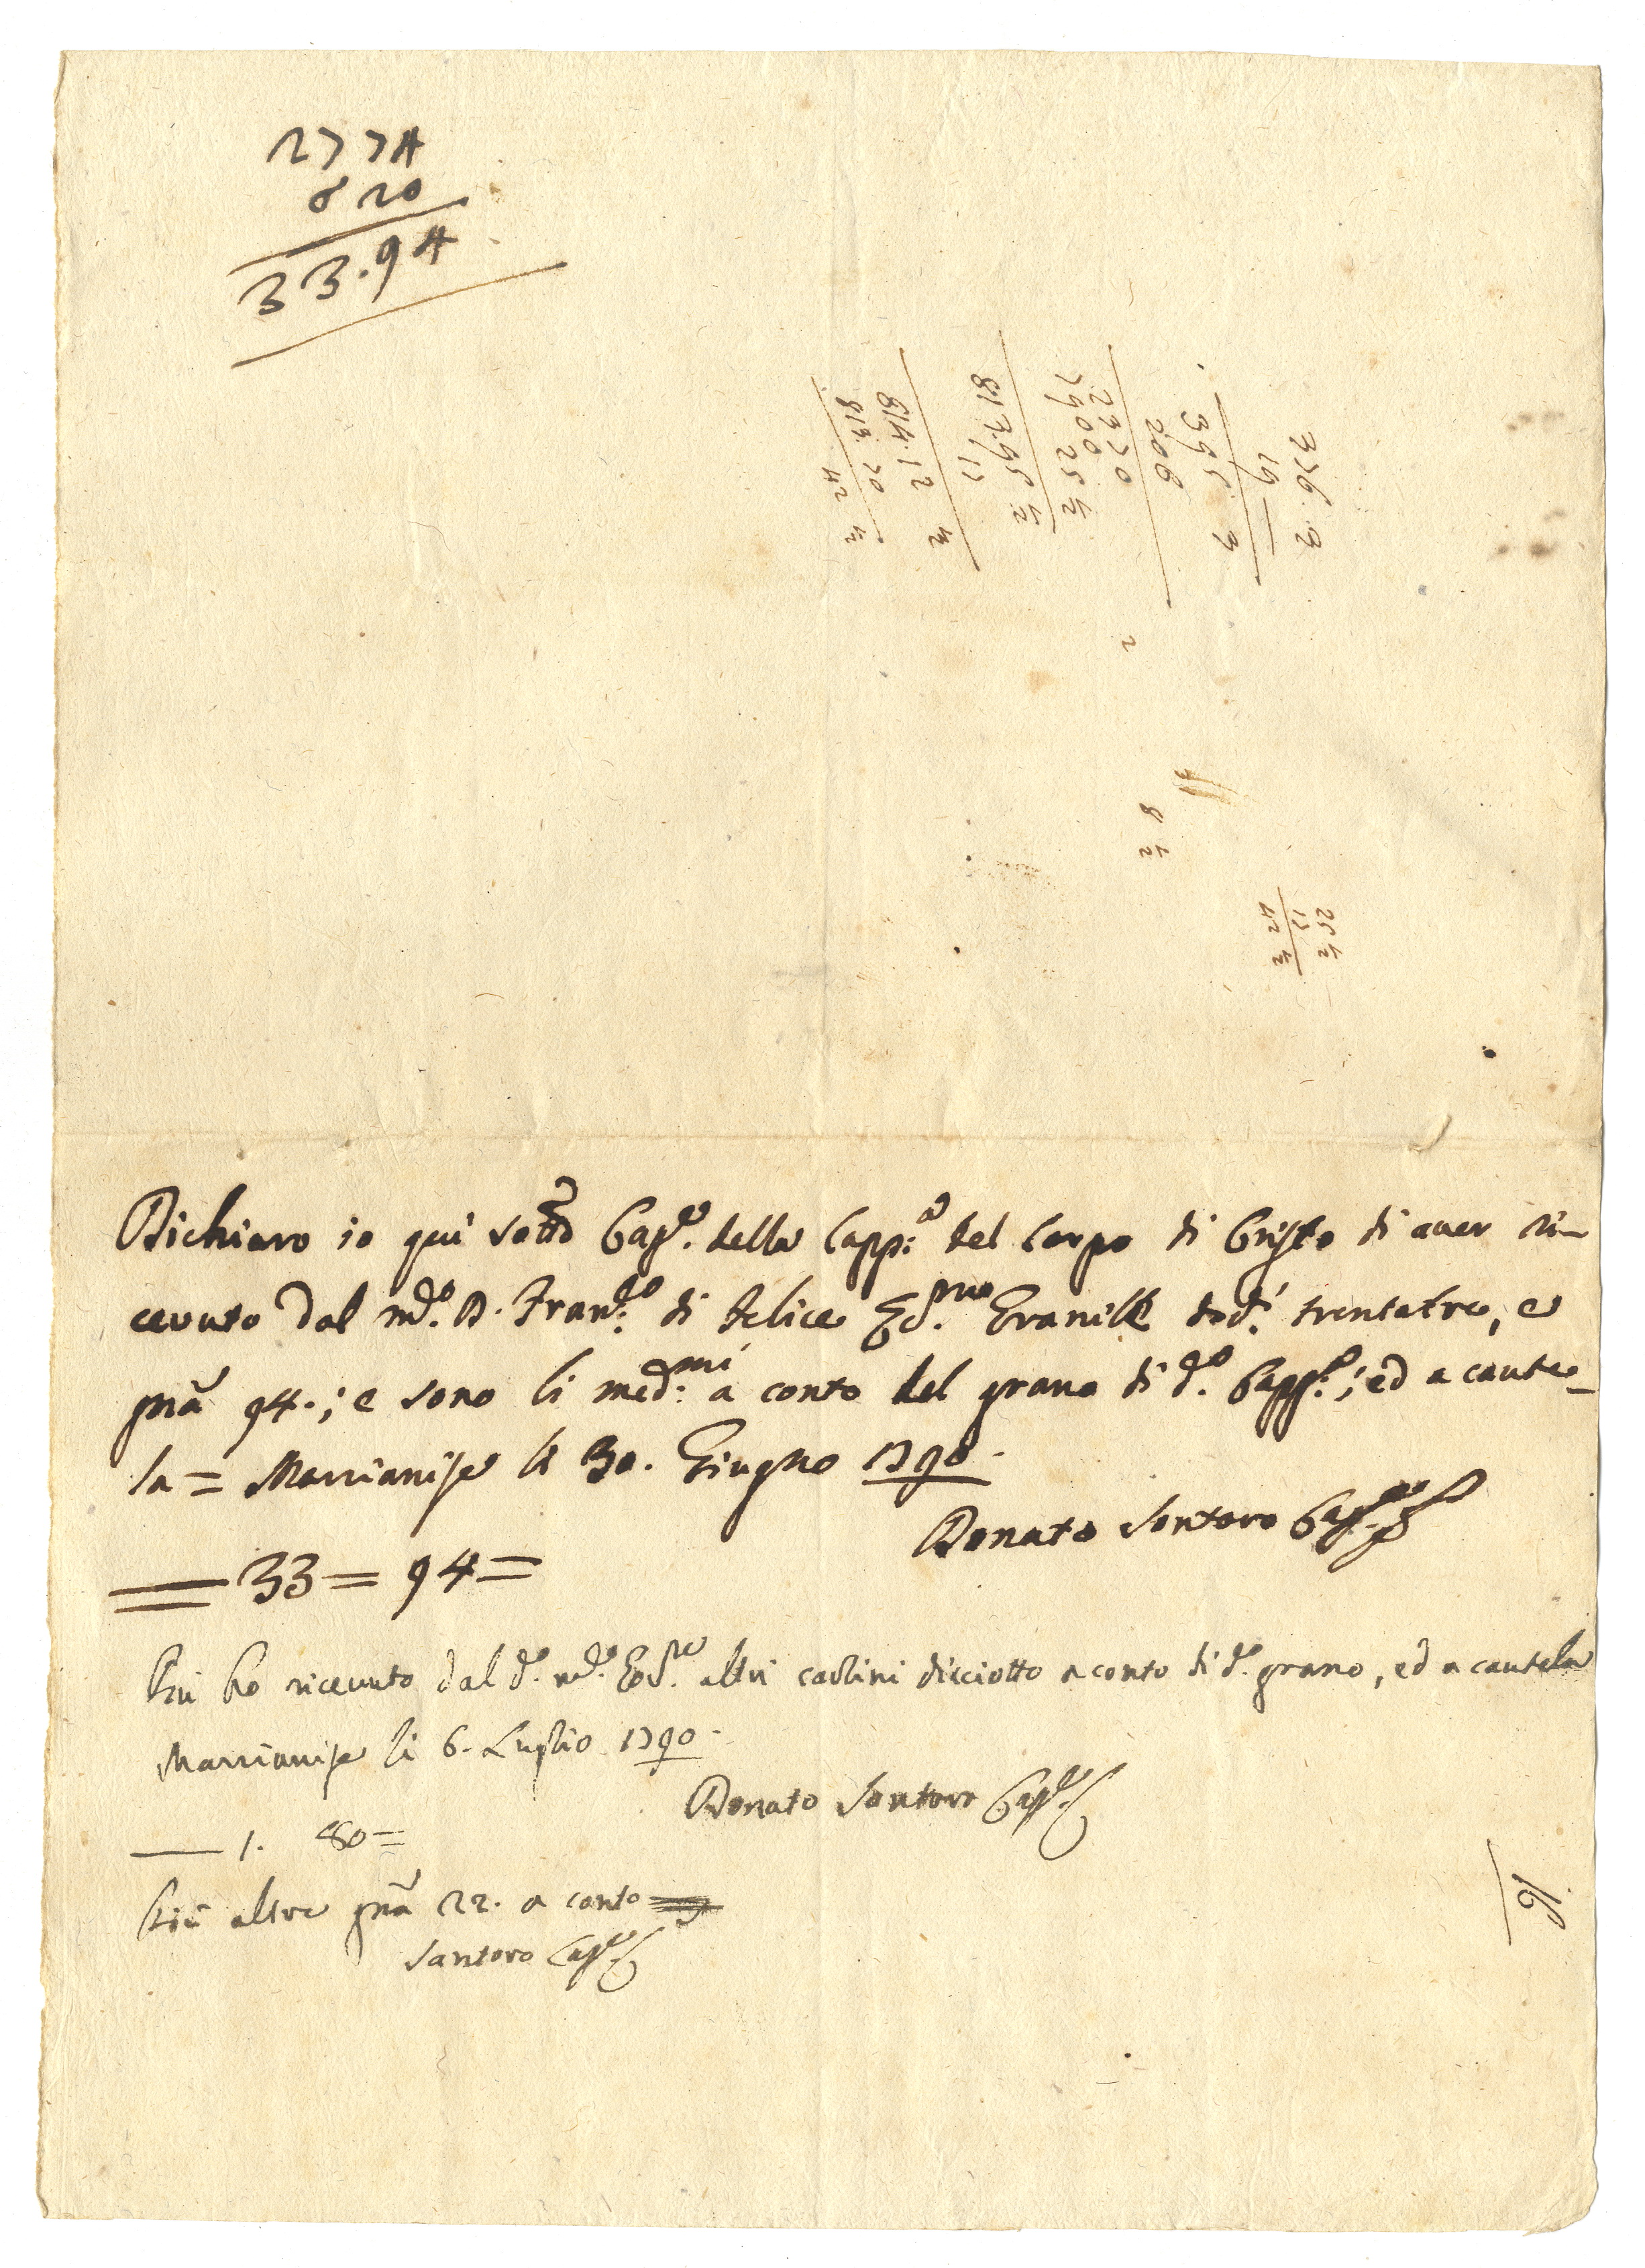 2774
620
33.94
376.2
19
395 3
208
2370
7900
25 ½
8173.95 ½
17
814.12 ½
813.70
42 ½
8 ½
25 ½
17
42 ½
Dichiaro io qui sotto Cass.e della Capp:a del Corpo di Cristo di aver ri-
cevuto dal md.o D. Fran:co di Felice doc.i trentatre, e
gña 94.; e sono li med:mi a conto del grano di d.a Capp:a; ed a caute-
la = Marcianise li 30. Giugno 1790.
Donato Santoro Cass.e
= 33 = 94 =
Più ho ricevuto dal d.o md.o altri carlini dieciotto a conto di d.o grano, ed a cautela
Marcianise li 6. Luglio 1790.
Donato Santoro Cass.e
1. 80 =
Più altre gña 22. a conto
Santoro Cass.e